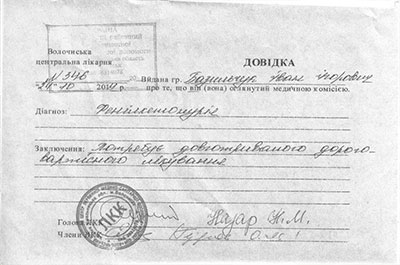 Волочиська
центральна лікарня
ДОВІДКА
№ 346
10 2014 Видана гр. Іван Ігорович
про те, що він (вона) оглянутий медичною комісією.
Діагноз: Фенілкетонурія
Заключення: Потребує довготривалого дорого-
вартісного лікування
Голова ЛКК Назар Н.М.
Члени ЛКК
ЛКК